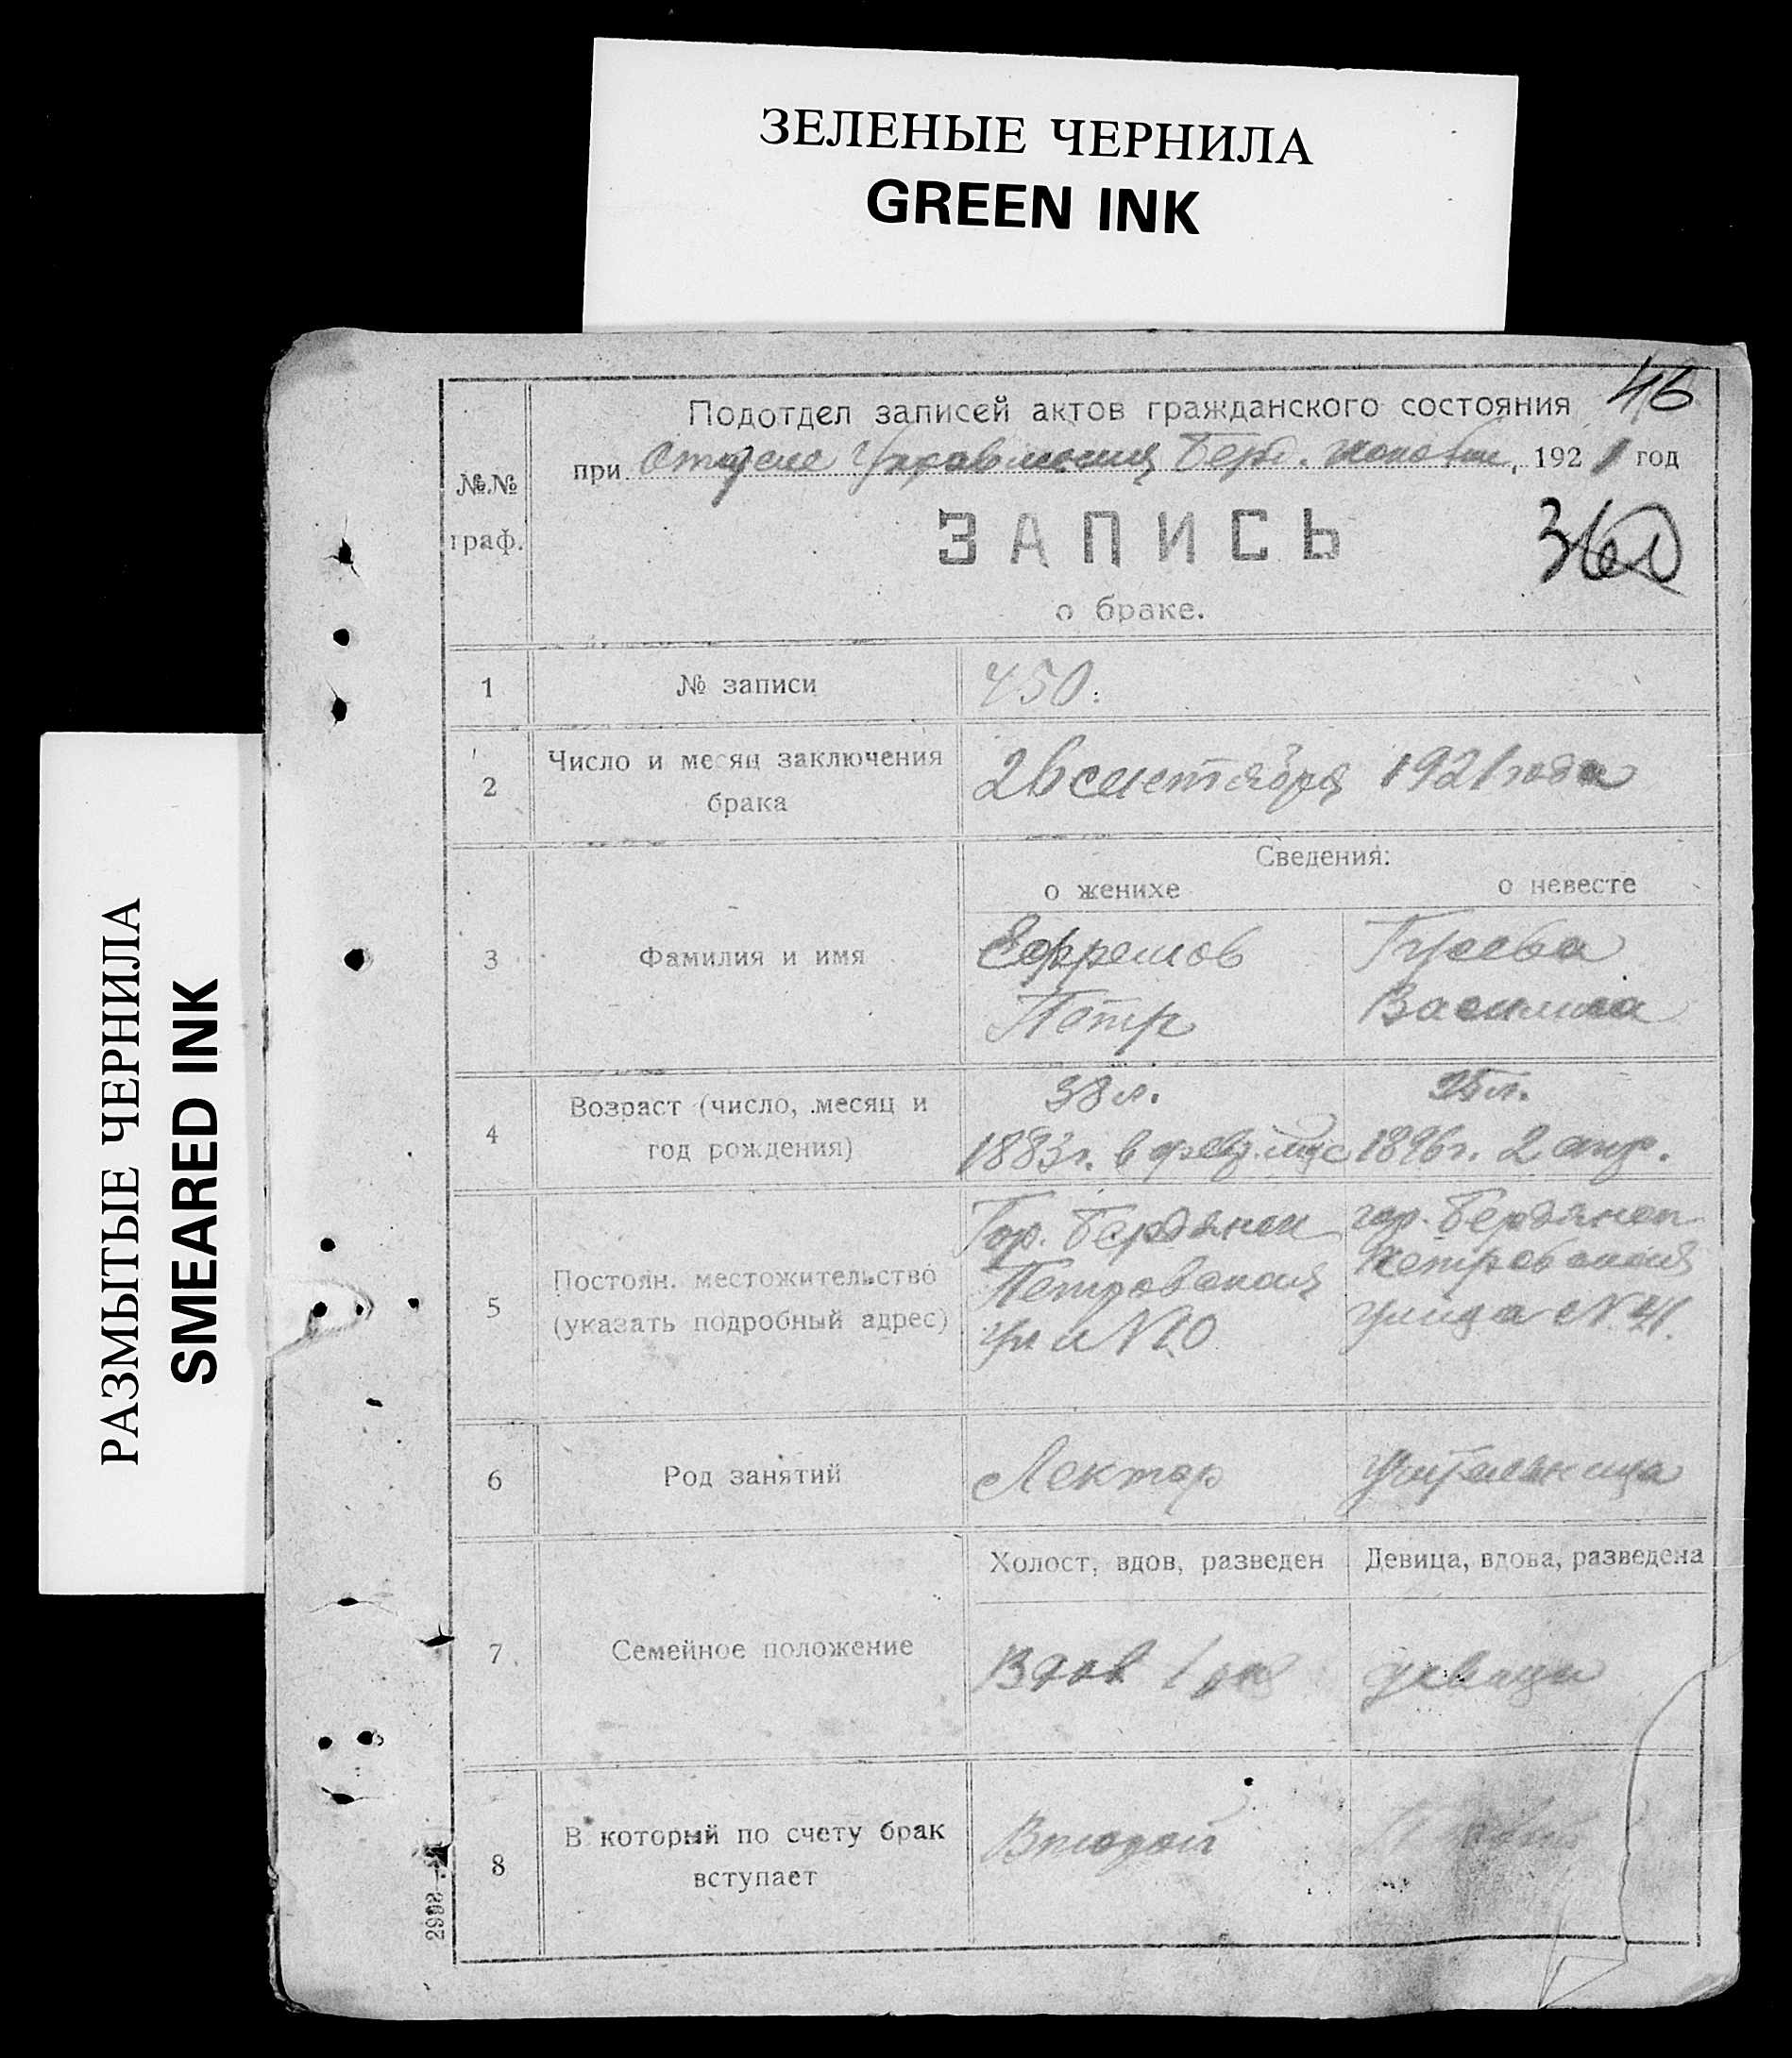 ЗЕЛЕНЫЕ ЧЕРНИЛА
GREEN INK
РАЗМЫТЫЕ ЧЕРНИЛА
SMEARED INK
46
Подотдел записей актов гражданского состояния
при Отделе Управления Берд. , 1921 год
№№ граф.
ЗАПИСЬ
360
о браке.
1 № записи 450.
2 Число и месяц заключения брака
26 сентября 1921 года
Сведения:
о женихе о невесте
3 Фамилия и имя
Ефремов Гусева
Петр Василиса
4 Возраст (число, месяц и год рождения)
38 л. 25 л.
1883 г. в февр. м-це 1896 г. 2 апр.
5 Постоян. местожительство (указать подробный адрес)
Гор. Бердянск
Петровская
ул №10
гор. Бердянск
Петровская
улица № 41.
6 Род занятий
Лектор Учительница
Холост, вдов, разведен Девица, вдова, разведена
7 Семейное положение
Вдов девица
8 В который по счету брак вступает
Второй Первый
2998